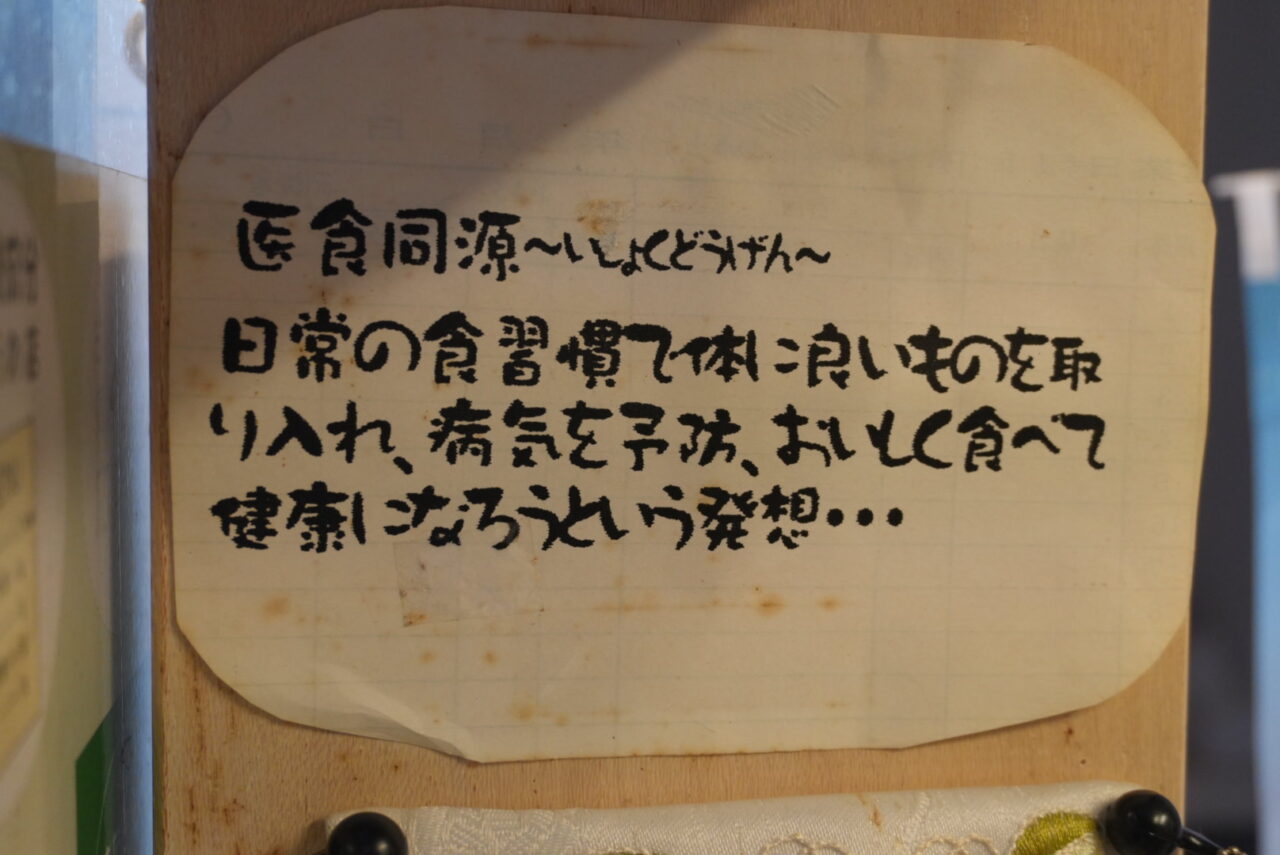 医食同源～いしょくどうげん～
日常の食習慣で体に良いものを取
り入れ、病気を予防、おいしく食べて
健康になろうという発想・・・